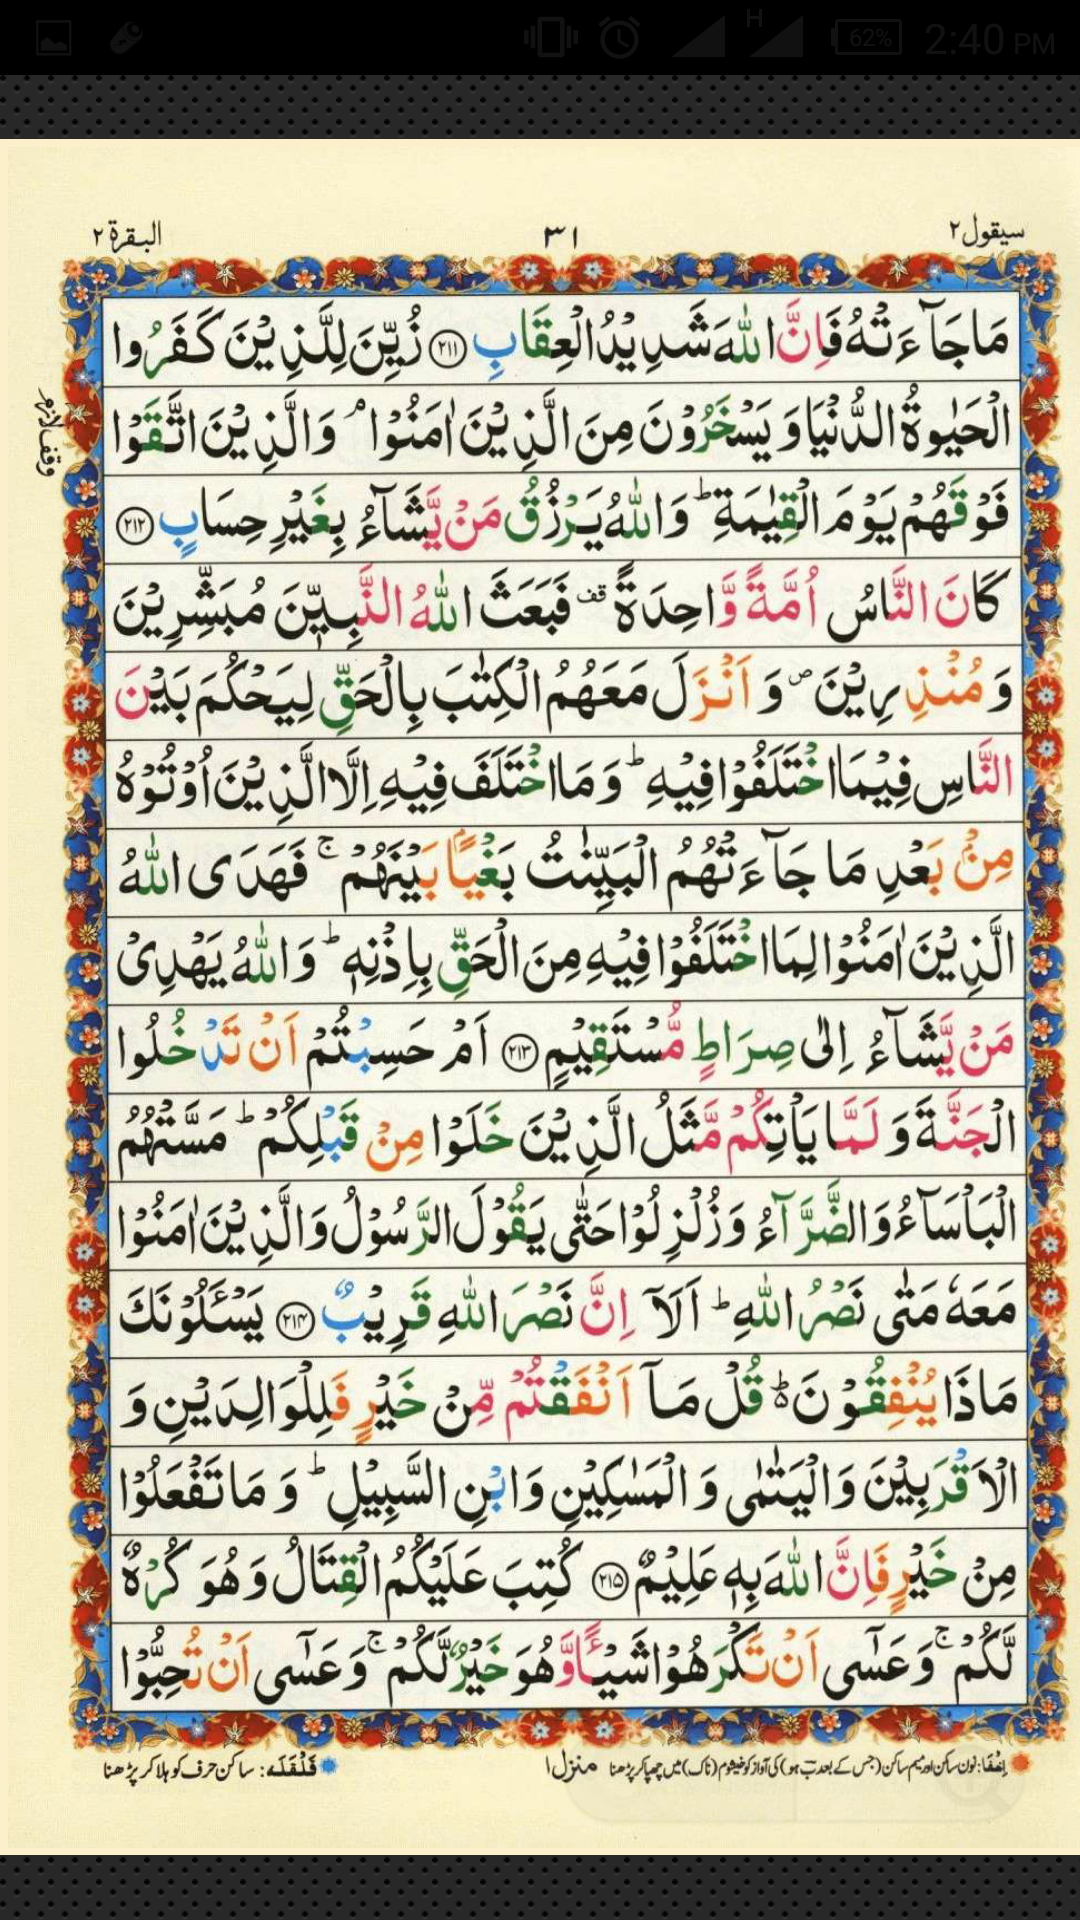 62% 2:40 PM
H
سیقول ٢ ٣١ البقرة ٢
مَا جَآءَتْهُ فَاِنَّ اللّٰهَ شَدِیْدُ الْعِقَابِ ﴿۲۱۱﴾ زُیِّنَ لِلَّذِیْنَ كَفَرُوا
الْحَیٰوةُ الدُّنْیَا وَ یَسْخَرُوْنَ مِنَ الَّذِیْنَ اٰمَنُوْا ۘ وَ الَّذِیْنَ اتَّقَوْا
وقف لازم
فَوْقَهُمْ یَوْمَ الْقِیٰمَةِ ؕ وَ اللّٰهُ یَرْزُقُ مَنْ یَّشَآءُ بِغَیْرِ حِسَابٍ ﴿۲۱۲﴾
كَانَ النَّاسُ اُمَّةً وَّاحِدَةً قف فَبَعَثَ اللّٰهُ النَّبِیّٖنَ مُبَشِّرِیْنَ
وَ مُنْذِرِیْنَ ص وَ اَنْزَلَ مَعَهُمُ الْكِتٰبَ بِالْحَقِّ لِیَحْكُمَ بَیْنَ
النَّاسِ فِیْمَا اخْتَلَفُوْا فِیْهِ ؕ وَ مَا اخْتَلَفَ فِیْهِ اِلَّا الَّذِیْنَ اُوْتُوْهُ
مِنْۢ بَعْدِ مَا جَآءَتْهُمُ الْبَیِّنٰتُ بَغْیًۢا بَیْنَهُمْ ۚ فَهَدَی اللّٰهُ
الَّذِیْنَ اٰمَنُوْا لِمَا اخْتَلَفُوْا فِیْهِ مِنَ الْحَقِّ بِاِذْنِهٖ ؕ وَ اللّٰهُ یَهْدِیْ
مَنْ یَّشَآءُ اِلٰی صِرَاطٍ مُّسْتَقِیْمٍ ﴿۲۱۳﴾ اَمْ حَسِبْتُمْ اَنْ تَدْخُلُوا
الْجَنَّةَ وَ لَمَّا یَاْتِكُمْ مَّثَلُ الَّذِیْنَ خَلَوْا مِنْ قَبْلِكُمْ ؕ مَسَّتْهُمُ
الْبَاْسَآءُ وَ الضَّرَّآءُ وَ زُلْزِلُوْا حَتّٰی یَقُوْلَ الرَّسُوْلُ وَ الَّذِیْنَ اٰمَنُوْا
مَعَهٗ مَتٰی نَصْرُ اللّٰهِ ؕ اَلَاۤ اِنَّ نَصْرَ اللّٰهِ قَرِیْبٌ ﴿۲۱۴﴾ یَسْـَٔلُوْنَكَ
مَاذَا یُنْفِقُوْنَ ؕ قُلْ مَاۤ اَنْفَقْتُمْ مِّنْ خَیْرٍ فَلِلْوَالِدَیْنِ وَ
الْاَقْرَبِیْنَ وَ الْیَتٰمٰی وَ الْمَسٰكِیْنِ وَ ابْنِ السَّبِیْلِ ؕ وَ مَا تَفْعَلُوْا
مِنْ خَیْرٍ فَاِنَّ اللّٰهَ بِهٖ عَلِیْمٌ ﴿۲۱۵﴾ كُتِبَ عَلَیْكُمُ الْقِتَالُ وَ هُوَ كُرْهٌ
لَّكُمْ ۚ وَ عَسٰۤی اَنْ تَكْرَهُوْا شَیْـًٔا وَّ هُوَ خَیْرٌ لَّكُمْ ۚ وَ عَسٰۤی اَنْ تُحِبُّوْا
اِخفا: نون ساکن اور میم ساکن (جس کے بعد بؔ ہو) کی آواز کو خیشوم (ناک) میں چھپا کر پڑھنا منزل ١ قَلْقَلَه: ساکن حرف کو ہلا کر پڑھنا